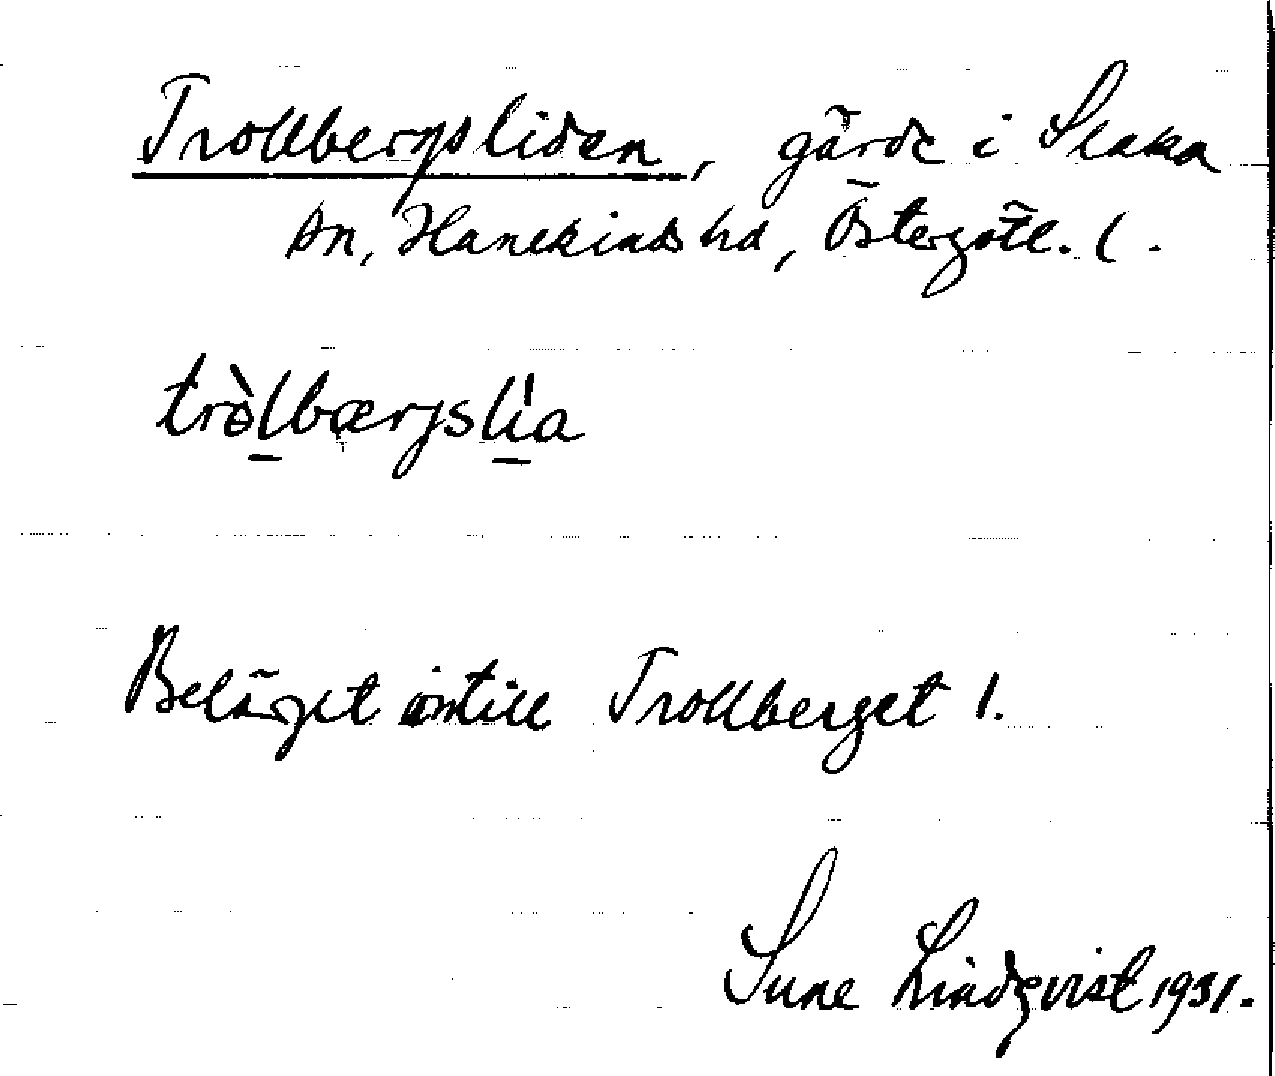 Trollbergsliden, gärde i Slaka
sn, Hanekinds hd, Östergötl. l.
tròlbærjslı́a
Beläget intill Trollberget 1.
Sune Lindqvist 1931.